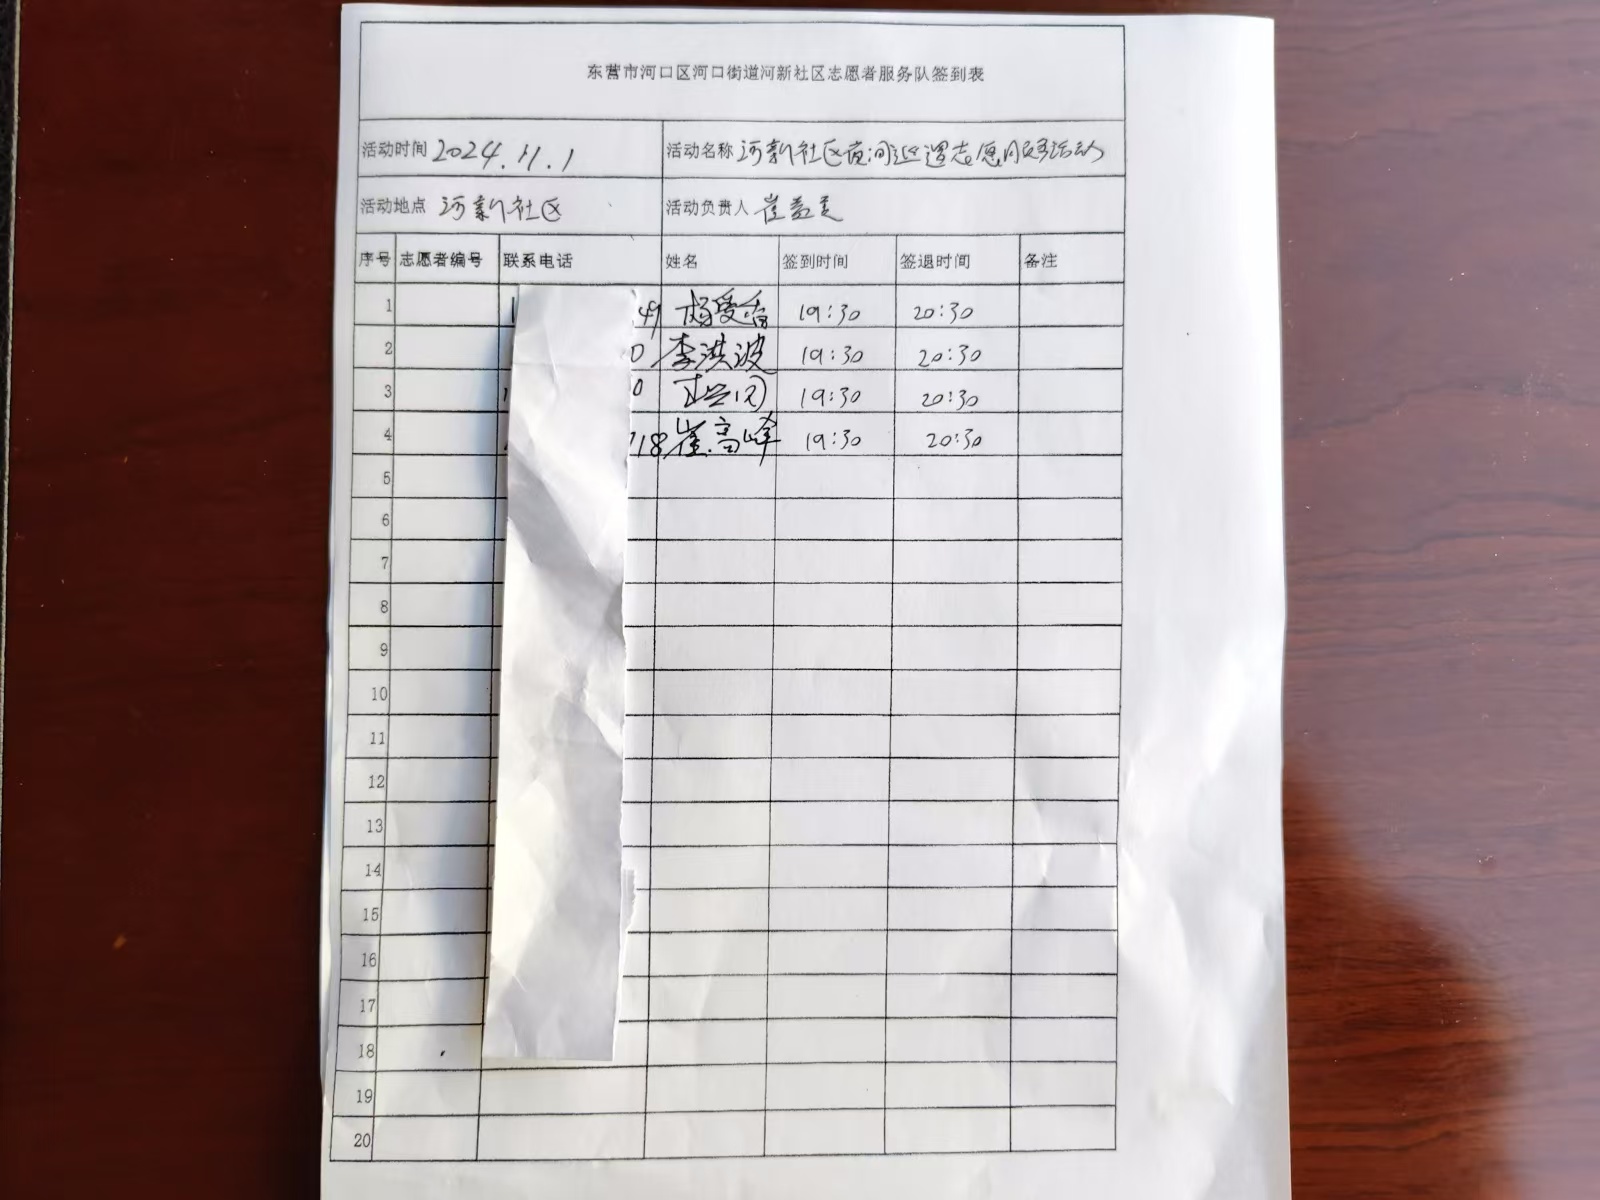 东营市河口区河口街道河新社区志愿者服务队签到表
活动时间 2024.11.1 活动名称 河新社区夜间巡逻志愿服务活动
活动地点 河新社区 活动负责人 崔
序号 志愿者编号 联系电话 姓名 签到时间 签退时间 备注
1 49 杨爱香 19:30 20:30
2 0 李洪波 19:30 20:30
3 0 19:30 20:30
4 718 崔高峰 19:30 20:30
5
6
7
8
9
10
11
12
13
14
15
16
17
18
19
20